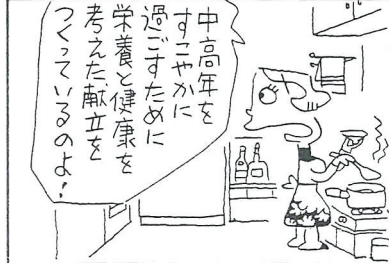 中高年を
すこやかに
過ごすために
栄養と健康を
考えた献立を
つくっているのよ!